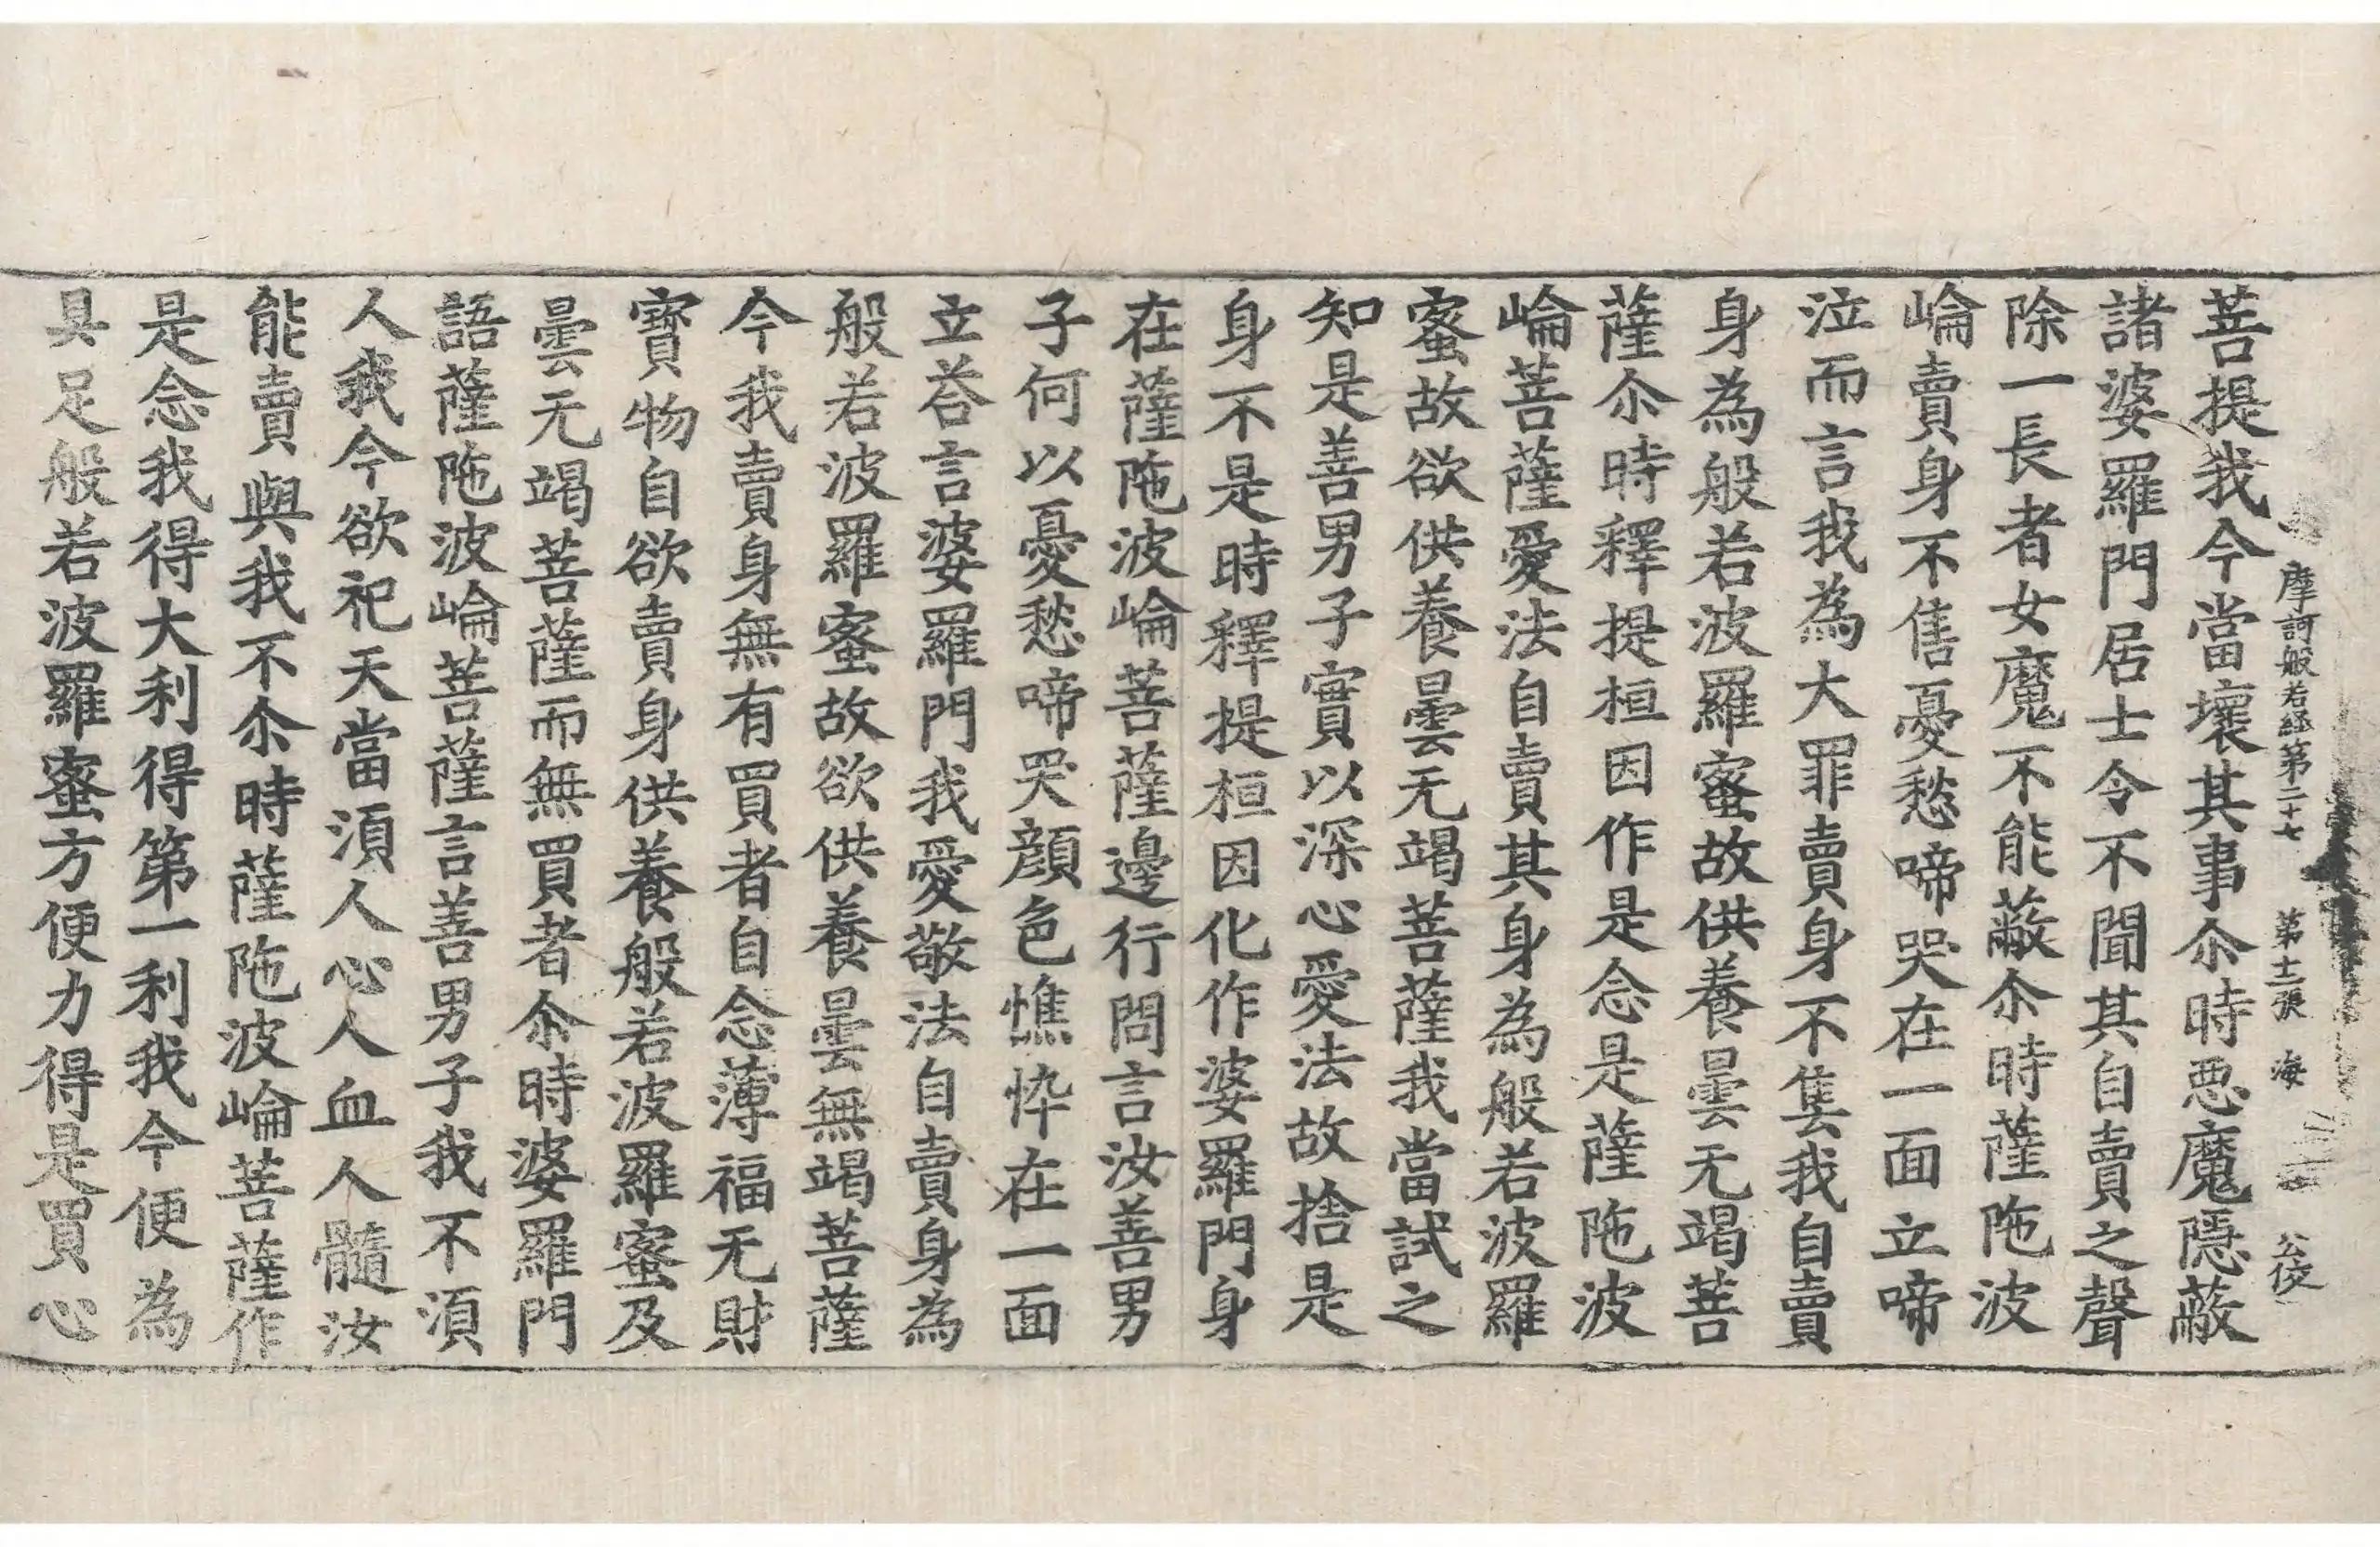 摩訶般若經第二十七　第十二張　海　公佼
菩提我今當壞其事尒時惡魔隱蔽
諸婆羅門居士令不聞其自賣之聲
除一長者女魔不能蔽尒時薩陁波
崘賣身不售憂愁啼哭在一面立啼
泣而言我為大罪賣身不售我自賣
身為般若波羅蜜故供養曇无竭菩
薩尒時釋提桓因作是念是薩陁波
崘菩薩愛法自賣其身為般若波羅
蜜故欲供養曇无竭菩薩我當試之
知是善男子實以深心愛法故捨是
身不是時釋提桓因化作婆羅門身
在薩陁波崘菩薩邊行問言汝善男
子何以憂愁啼哭顔色憔悴在一面
立荅言婆羅門我愛敬法自賣身為
般若波羅蜜故欲供養曇無竭菩薩
今我賣身無有買者自念薄福无財
寶物自欲賣身供養般若波羅蜜及
曇无竭菩薩而無買者尒時婆羅門
語薩陁波崘菩薩言善男子我不湏
人我今欲祀天當湏人心人血人髓汝
能賣與我不尒時薩陁波崘菩薩作
是念我得大利得第一利我今便為
具足般若波羅蜜方便力得是買心